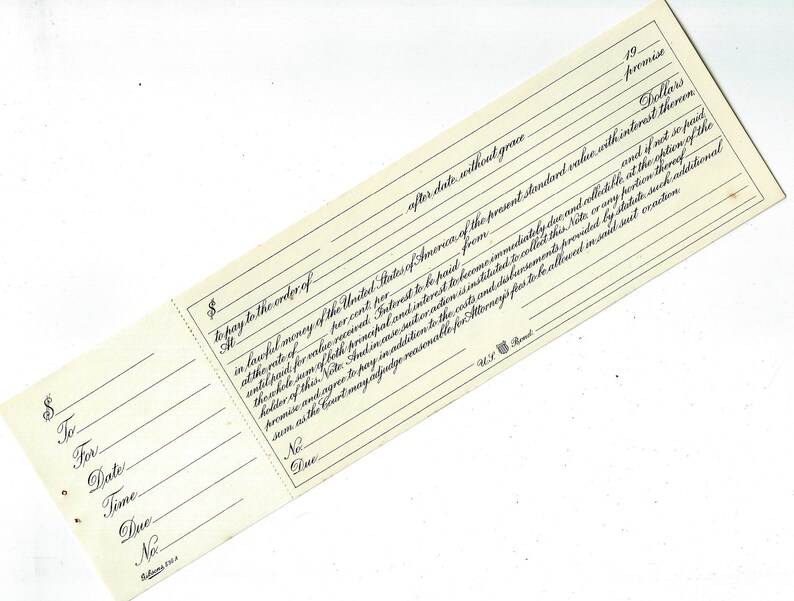 $
To
For
Date
Time
Due
No.
Gibsons 596 A
$ 19
after date, without grace promise
to pay to the order of
At Dollars
in lawful money of the United States of America, of the present standard value, with interest thereon,
at the rate of per cent. per from
until paid, for value received. Interest to be paid and if not so paid,
the whole sum of both principal and interest to become immediately due and collectible at the option of the
holder of this Note. And in case suit or action is instituted to collect this Note, or any portion thereof
promise and agree to pay, in addition to the costs and disbursements provided by statute, such additional
sum, as the Court may adjudge reasonable, for Attorney's fees to be allowed in said suit or action.
No.
Due
U.S. Bond.